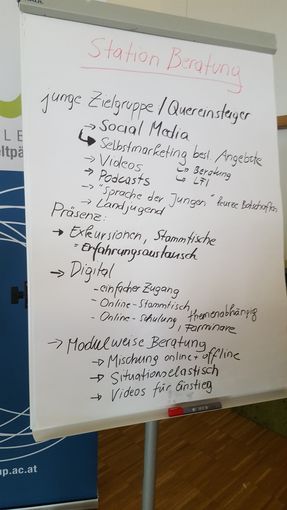 Station Beratung
junge Zielgruppe / Quereinsteiger
→ Social Media
↳ Selbstmarketing best. Angebote
→ Videos ↳ Beratung
→ Podcasts ↳ LFI
→ "Sprache der Jungen" kurze Botschaften
→ Landjugend
Präsenz:
→ Exkursionen, Stammtische
= Erfahrungsaustausch
→ Digital
- einfacher Zugang
- Online-Stammtisch, themenabhängig
- Online-Schulung, Farminare
→ Modulweise Beratung
→ Mischung online + offline
→ Situationselastisch
→ Videos für Einstieg
LE
eltpä
up.ac.at